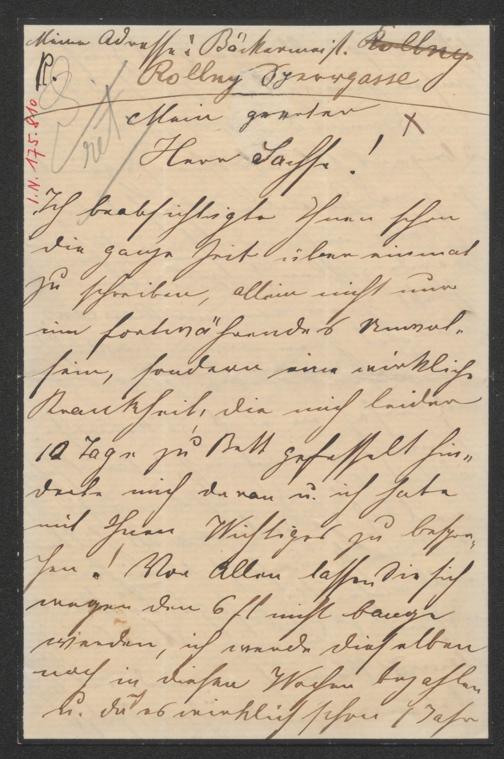 Meine Adresse: Bäckermeist. Kollny
R. Kollny Sporrgasse
ret
I.N. 175.810
Mein geerter
Herr Sachse!
Ich beabsichtigte Ihnen schon
die ganze Zeit über einmal
zu schreiben, allein nicht nur
ein fortwährendes Unwol-
sein, sondern eine wirkliche
Krankheit, die mich leider
10 Tage zu Bett gefesselt hin-
derte mich daran u. ich habe
mit Ihnen Wichtiges zu bespre-
chen! Vor Allem lassen Sie sich
wegen den 6 fl nicht bange
werden, ich werde dieselben
noch in diesen Wochen bezahlen
u. da es wirklich schon 1 Jahr